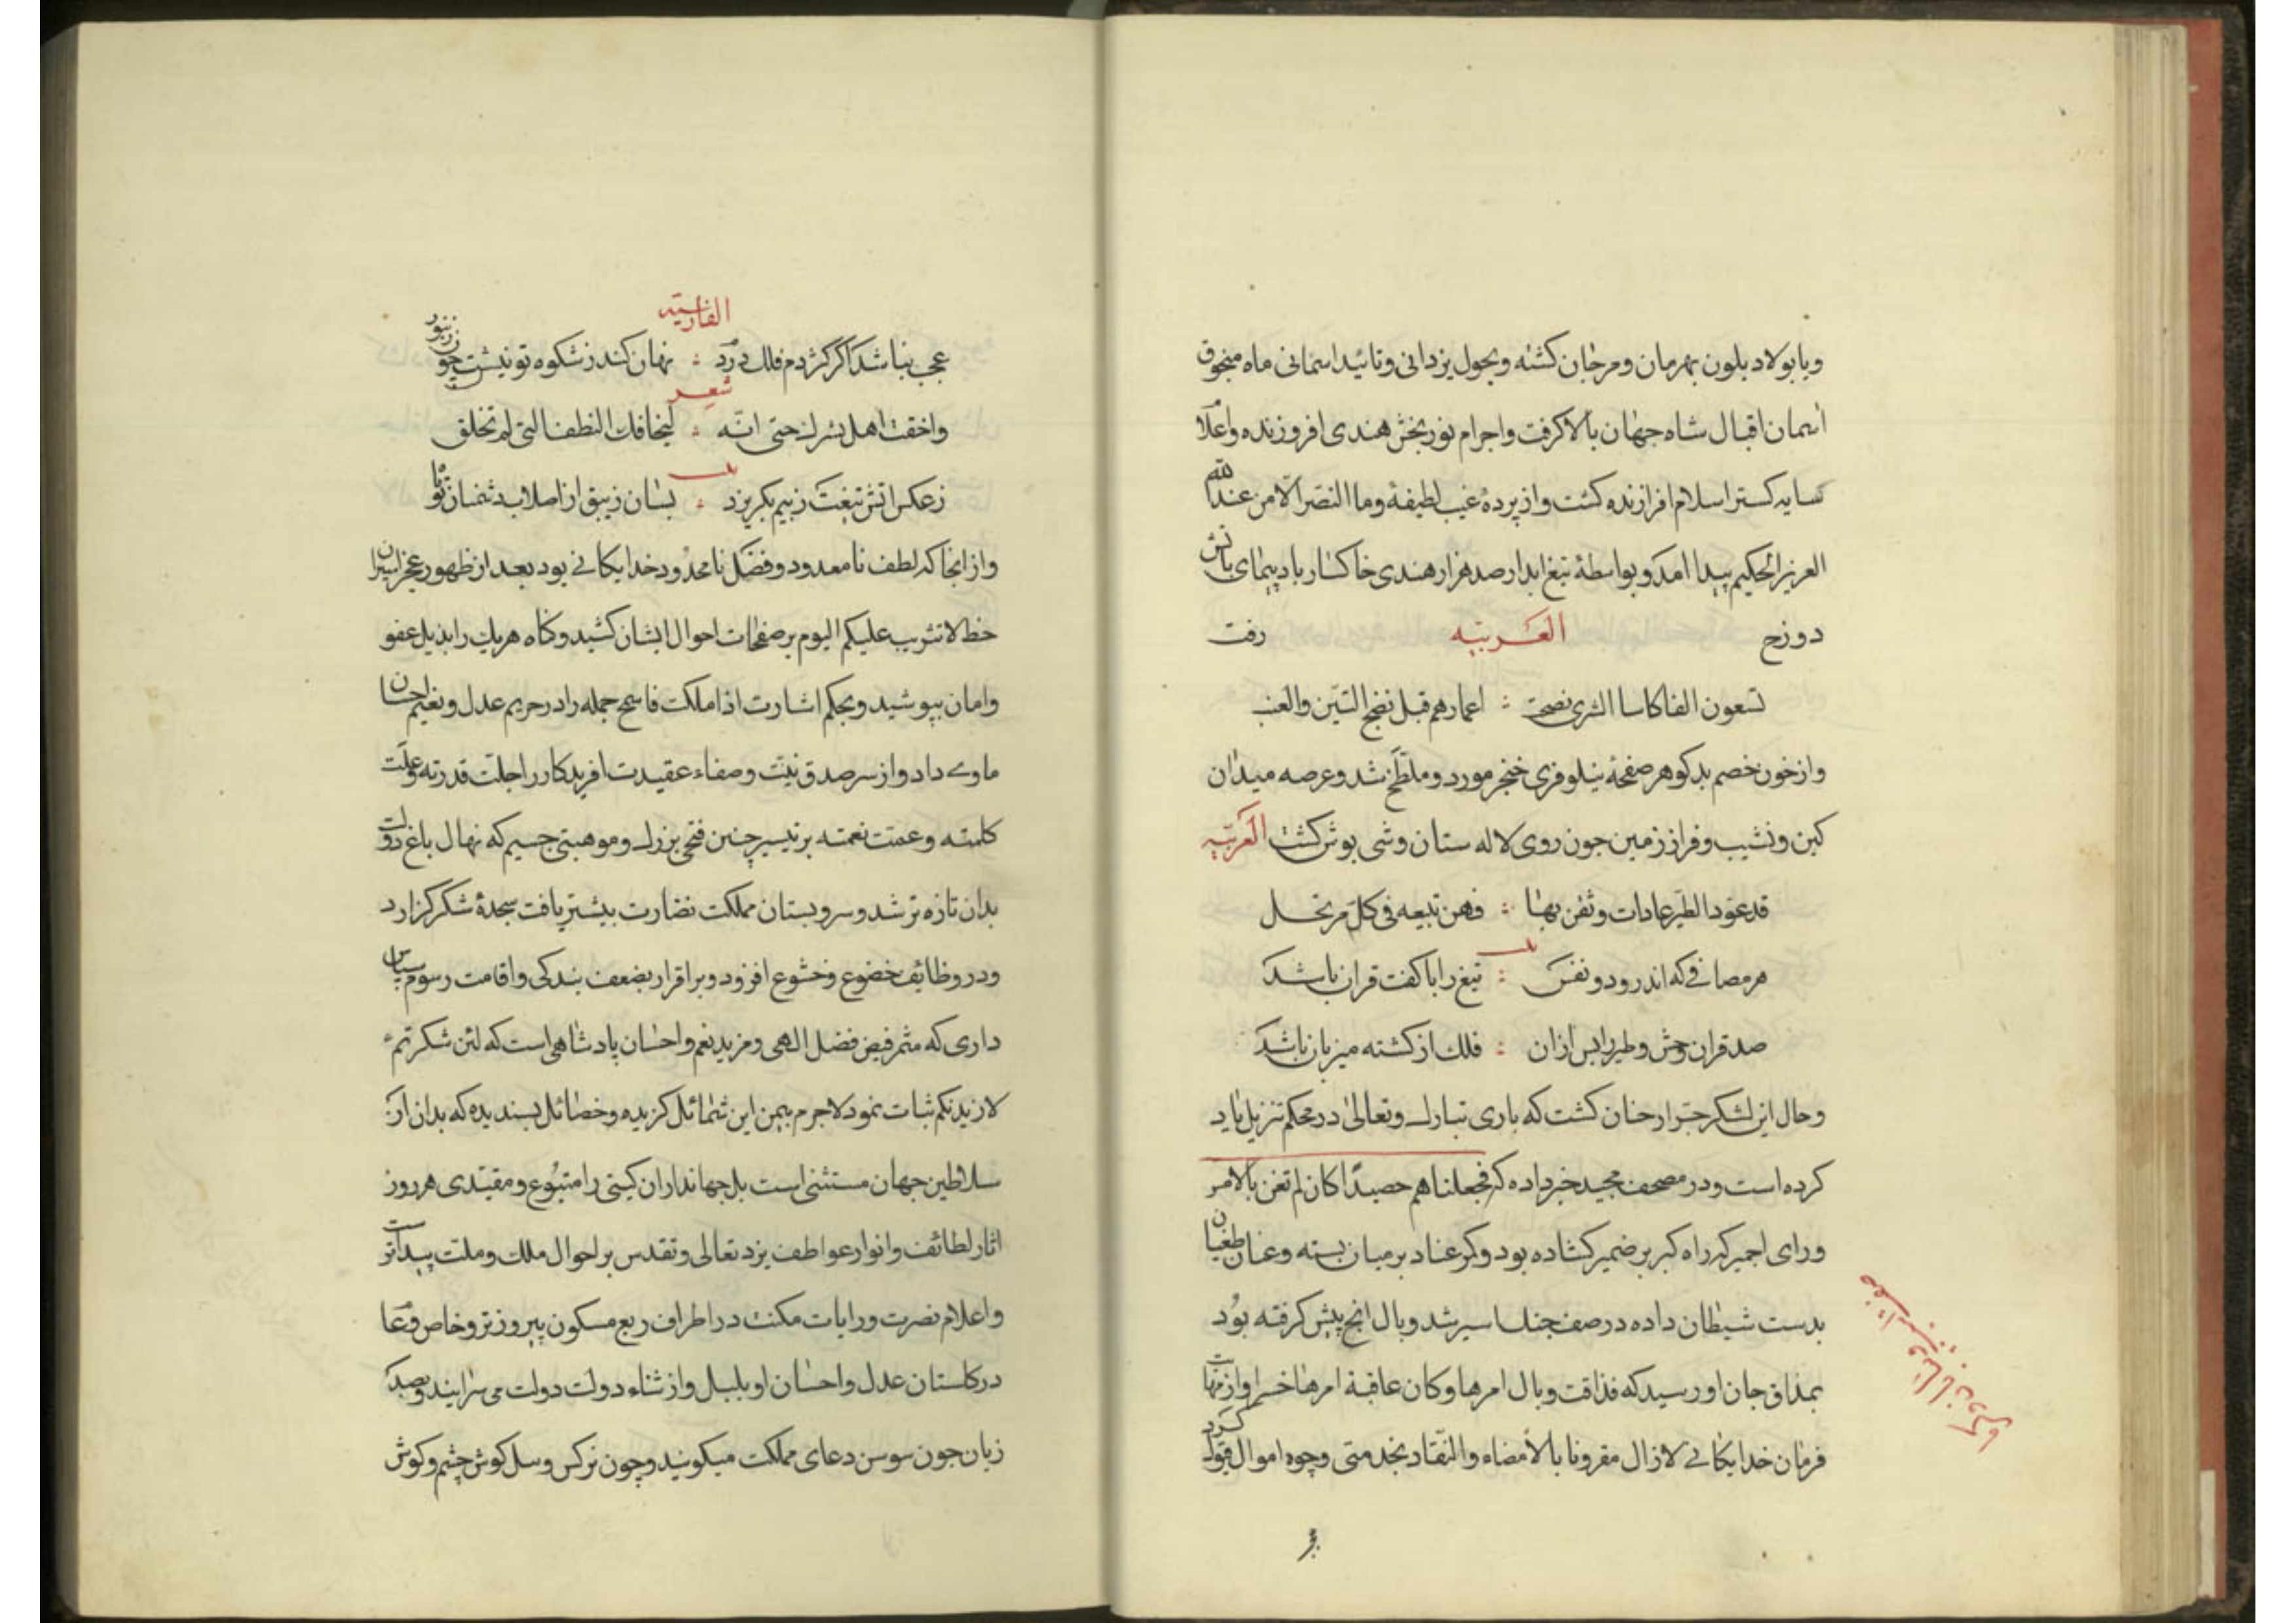 وبا بولاد بلون بهرمان ومرجان کشته وبحول یزدانی وتائید اسمانی ماه منجوق
اسمان اقبال شاه جهان بالا کرفت واجرام نوربخش هندی افروزنده واعلام
سایه کستر اسلام افرازنده کشت واز پردهٔ غیب لطیفهٔ وما النصر الّا من عند الله
العزیز الحکیم پیدا امد وبواسطهٔ تیغ ابدار صد هزار هندی خاکسار باد پیمای باتش
دوزخ العربیه رفت
تسعون الفا کاساد الشری نضجت : اعمارهم قبل نضج التین والعنب
واز خون خصم بدکوهر صفحهٔ نیلوفری خنجر مورد وملطّخ شد وعرصه میدان
کین ونشیب وفراز زمین جون روی لاله ستان وشی پوش کشت العربیّه
قد عوّد الطیر عادات وثقن بها : فهن تتبعه فی کلّ مرتحل
هر مصافی که اندرو دو نفس : تیغ را با کفت قران باشد
صد قران وحش وطیر را پس ازان : فلک از کشته میزبان باشد
وحال این لشکر جرار جنان کشت که باری تبارک وتعالی در محکم تنزیل یاد
کرده است ودر مصحف مجید خبر داده که فجعلناهم حصیدًا کان لم تغن بالامس
ورای اجمیر که راه کبر بر ضمیر کشاده بود وکمر عناد بر میان بسته وعنان طغیان
بدست شیطان داده در صف جنک اسیر شد وبال انج پیش کرفته بود
بمذاق جان او رسید که فذاقت وبال امرها وکان عاقبة امرها خسرا واز نهاب
فرمان خدایکانی لازال مقرونا بالامضاء والنفاد بخدمتی وجوه اموال قبول کرد
الفارسیّه
عجب نباشد اکر کژدم فلک در دم : نهان کند ز شکوه تو نیش جون زنبور
شعر
واخفت اهل الشرک حتی انّه : لتخافک النطف التی لم تخلق
بیت
ز عکس اتش تیغت ز بیم بکریزد : بسان زیبق از اصلاب دشمنان تو ما
واز انجا که لطف نامعدود وفضل نامحدود خدایکانی بود بعد از ظهور عجز اسیران
خط لا تثریب علیکم الیوم بر صفحات احوال ایشان کشید وکناه هر یک را بذیل عفو
وامان بپوشید وبحکم اشارت اذا ملکت فاسجح جمله را در حریم عدل ونعیم احسان
ماوی داد واز سر صدق نیّت وصفاء عقیدت افریدکار را جلّت قدرته وعلت
کلمته وعمّت نعمته بر تیسیر چنین فتحی بزرک وموهبتی جسیم که نهال باغ دولت
بدان تازه تر شد وسرو بستان مملکت نضارت بیشتر یافت سجدهٔ شکر کزارد
ودر وظائف خضوع وخشوع افزود وبر اقرار بضعف بندکی واقامت رسوم سپاس
داری که مثمر فیض فضل الهی ومزید نعم واحسان پادشاهی است که لئن شکرتم
لازیدنکم ثبات نمود لاجرم بیمن این شمائل کزیده وخصائل پسندیده که بدان از
سلاطین جهان مستثنی است بل جهانداران کیتی را متبوع ومقتدی هر روز
اثار لطائف وانوار عواطف یزد تعالی وتقدس بر احوال ملک وملت پیداتر است
واعلام نصرت ورایات مکنت در اطراف ربع مسکون پیروزتر وخاص وعام
در کلستان عدل واحسان او بلبل واز ثناء دولت می سرایند وبصد
زبان جون سوسن دعای مملکت میکویند وچون نرکس وسل کوش چشم وکوش